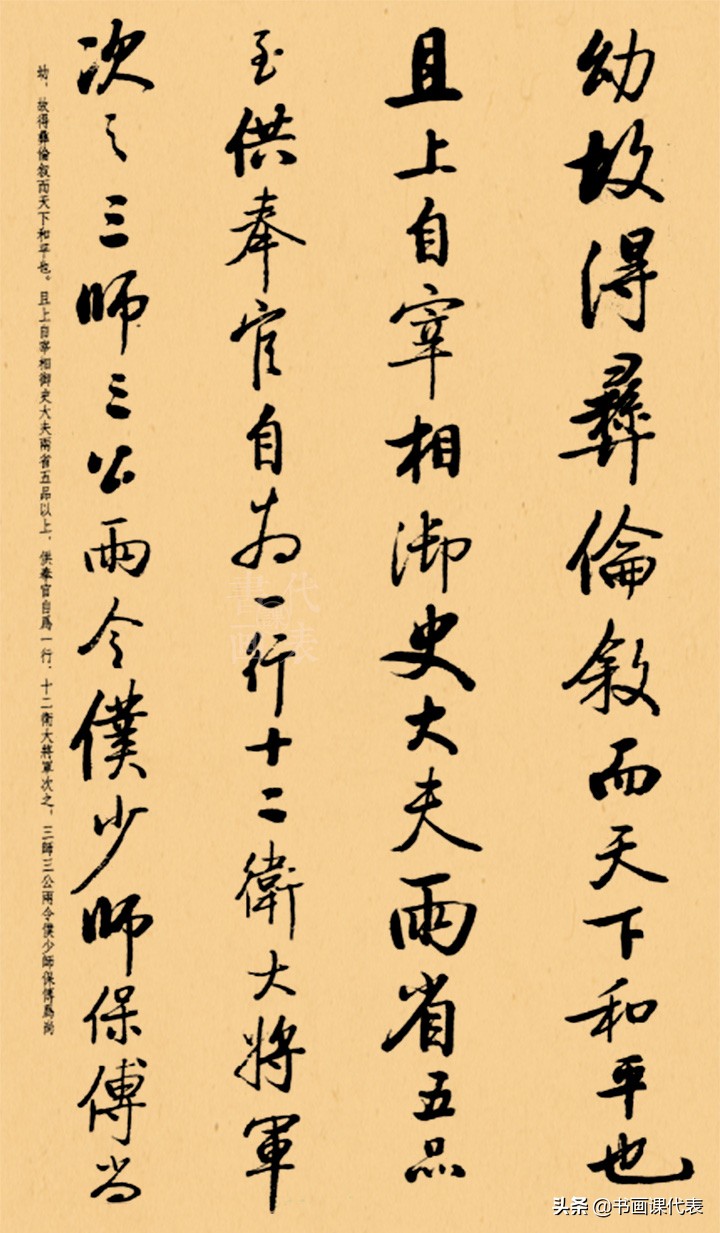 幼故得彝倫敘而天下和平也
且上自宰相御史大夫兩省五品
以上供奉官自為一行十二衛大將軍
次之三師三公兩令僕少師保傅尚
幼、故得彝倫叙而天下和平也。且上自宰相御史大夫兩省五品以上、供奉官自爲一行、十二衛大將軍次之、三師三公兩令僕少師保傅爲尚
头条 @书画课代表